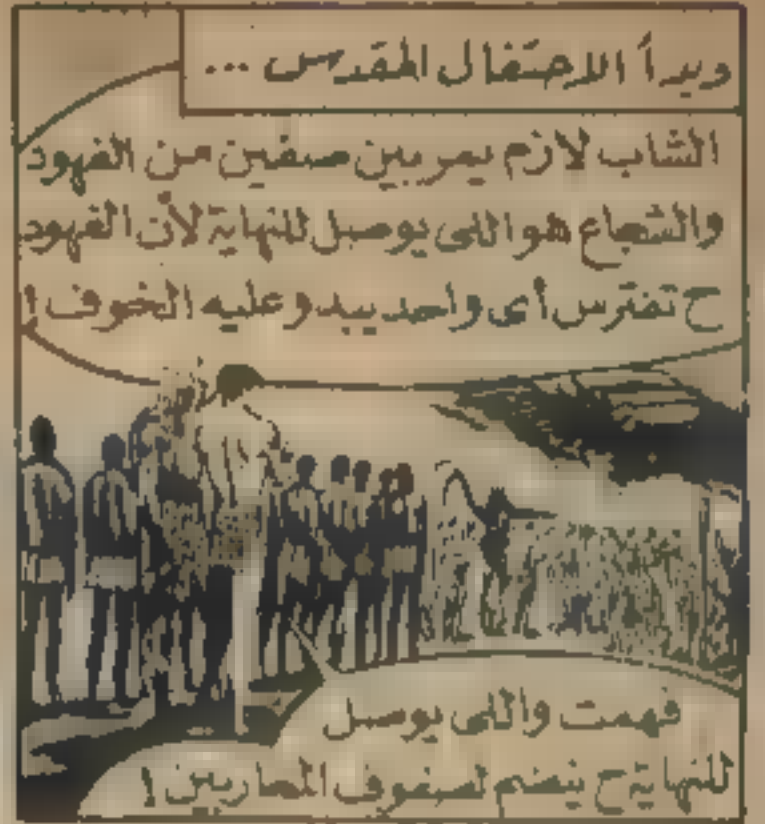 ويبدأ الاحتفال المقدس ...
الشاب لازم يمر بين صفين من الفهود
والشجاع هو اللى يوصل للنهاية لأن الفهود
ح تفترس أى واحد يبدو عليه الخوف !
فهمت واللى يوصل
للنهاية ح ينضم لصفوف المحاربين !